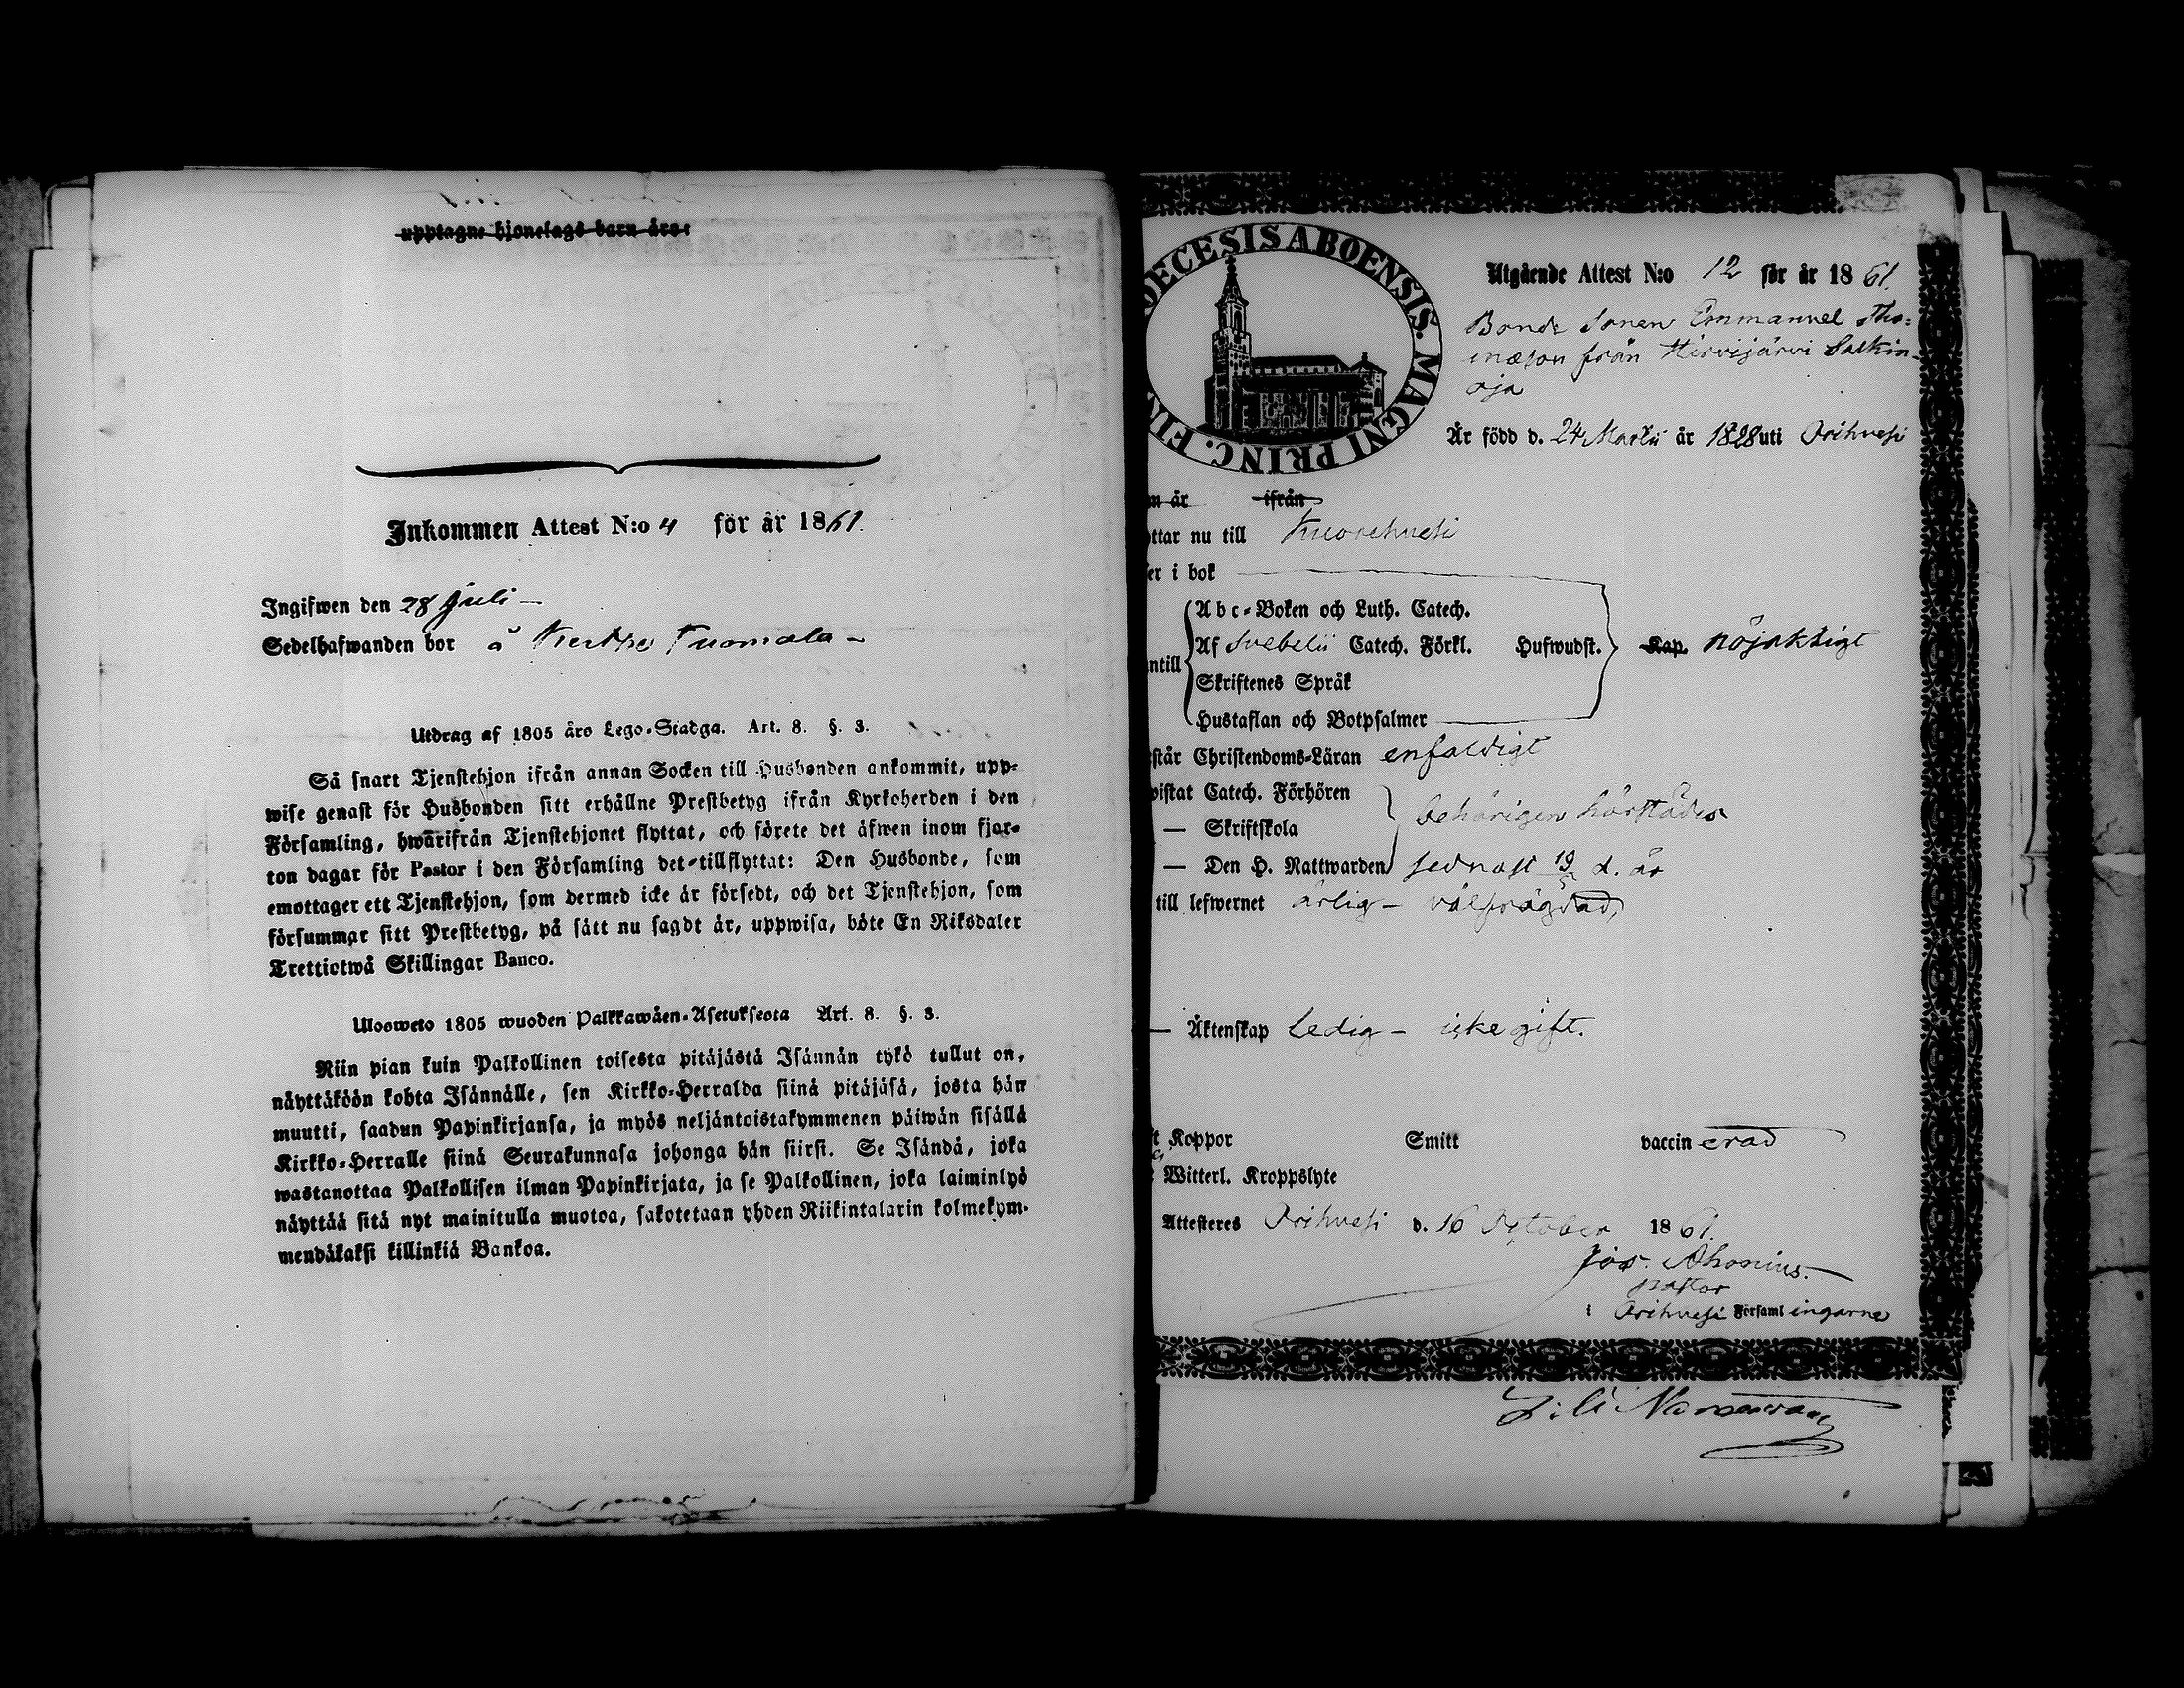 upptagne hjonelags barn äro:
Inkommen Attest N:o 4 för år 1861.
Ingifwen den 28 Juli —
Sedelhafwanden bor å Tuomala —
Utdrag af 1805 års Lego-Stadga. Art. 8. §. 3.
Så snart Tjenstehjon ifrån annan Socken till Husbonden ankommit, upp-
wise genast för Husbonden sitt erhållne Prestbetyg ifrån Kyrkoherden i den
Församling, hwarifrån Tjenstehjonet flyttat, och förete det äfwen inom fjor-
ton dagar för Pastor i den Församling det-tillflyttat: Den Husbonde, som
emottager ett Tjenstehjon, som dermed icke är försedt, och det Tjenstehjon, som
försummar sitt Prestbetyg, på sätt nu sagdt är, uppwisa, böte En Riksdaler
Trettiotwå Skillingar Banco.
Ulosweto 1805 wuoden Palkkawäen-Asetuksesta Art. 8. §. 3.
Niin pian kuin Palkollinen toisesta pitäjästä Isännän tykö tullut on,
näyttäköön kohta Isännälle, sen Kirkko-Herralda siinä pitäjäsä, josta hän
muutti, saadun Papinkirjansa, ja myös neljäntoistakymmenen päiwän sisällä
Kirkko-Herralle siinä Seurakunnasa johonga hän siirsi. Se Isändä, joka
wastanottaa Palkollisen ilman Papinkirjata, ja se Palkollinen, joka laiminlyö
näyttää sitä nyt mainitulla muotoa, sakotetaan yhden Riikintalarin kolmekym-
mendäkaksi killinkiä Bankoa.
DECESIS ABOENSIS. MAGNI PRINC. FIN
Utgående Attest N:o 12 för år 1861.
Bonde sonen Emmanuel Tho-
mæson från Hirvijärvi Salkin-
oja
Är född d. 24 Martii år 1828 uti Orihvesi
n är ifrån
ttar nu till Kuorehvesi
er i bok
Abc-Boken och Luth. Catech.
ntill Af Svebelii Catech. Förkl. Hufwudst. Kap. nöjaktigt
Skriftenes Språk
Hustaflan och Botpsalmer
står Christendoms-Läran enfaldigt
wistat Catech. Förhören
— Skriftskola behörigen härstädes
— Den H. Nattwarden sednast d. år
till lefwernet ärlig — välfrägdad,
— Äktenskap Ledig — icke gift.
t Koppor Smitt vaccinerad
Witterl. Kroppslyte
Attesteres Orihvesi d. 16 October 1861.
Jos. Ahonius.
pastor
i Orihvesi Församlingarne